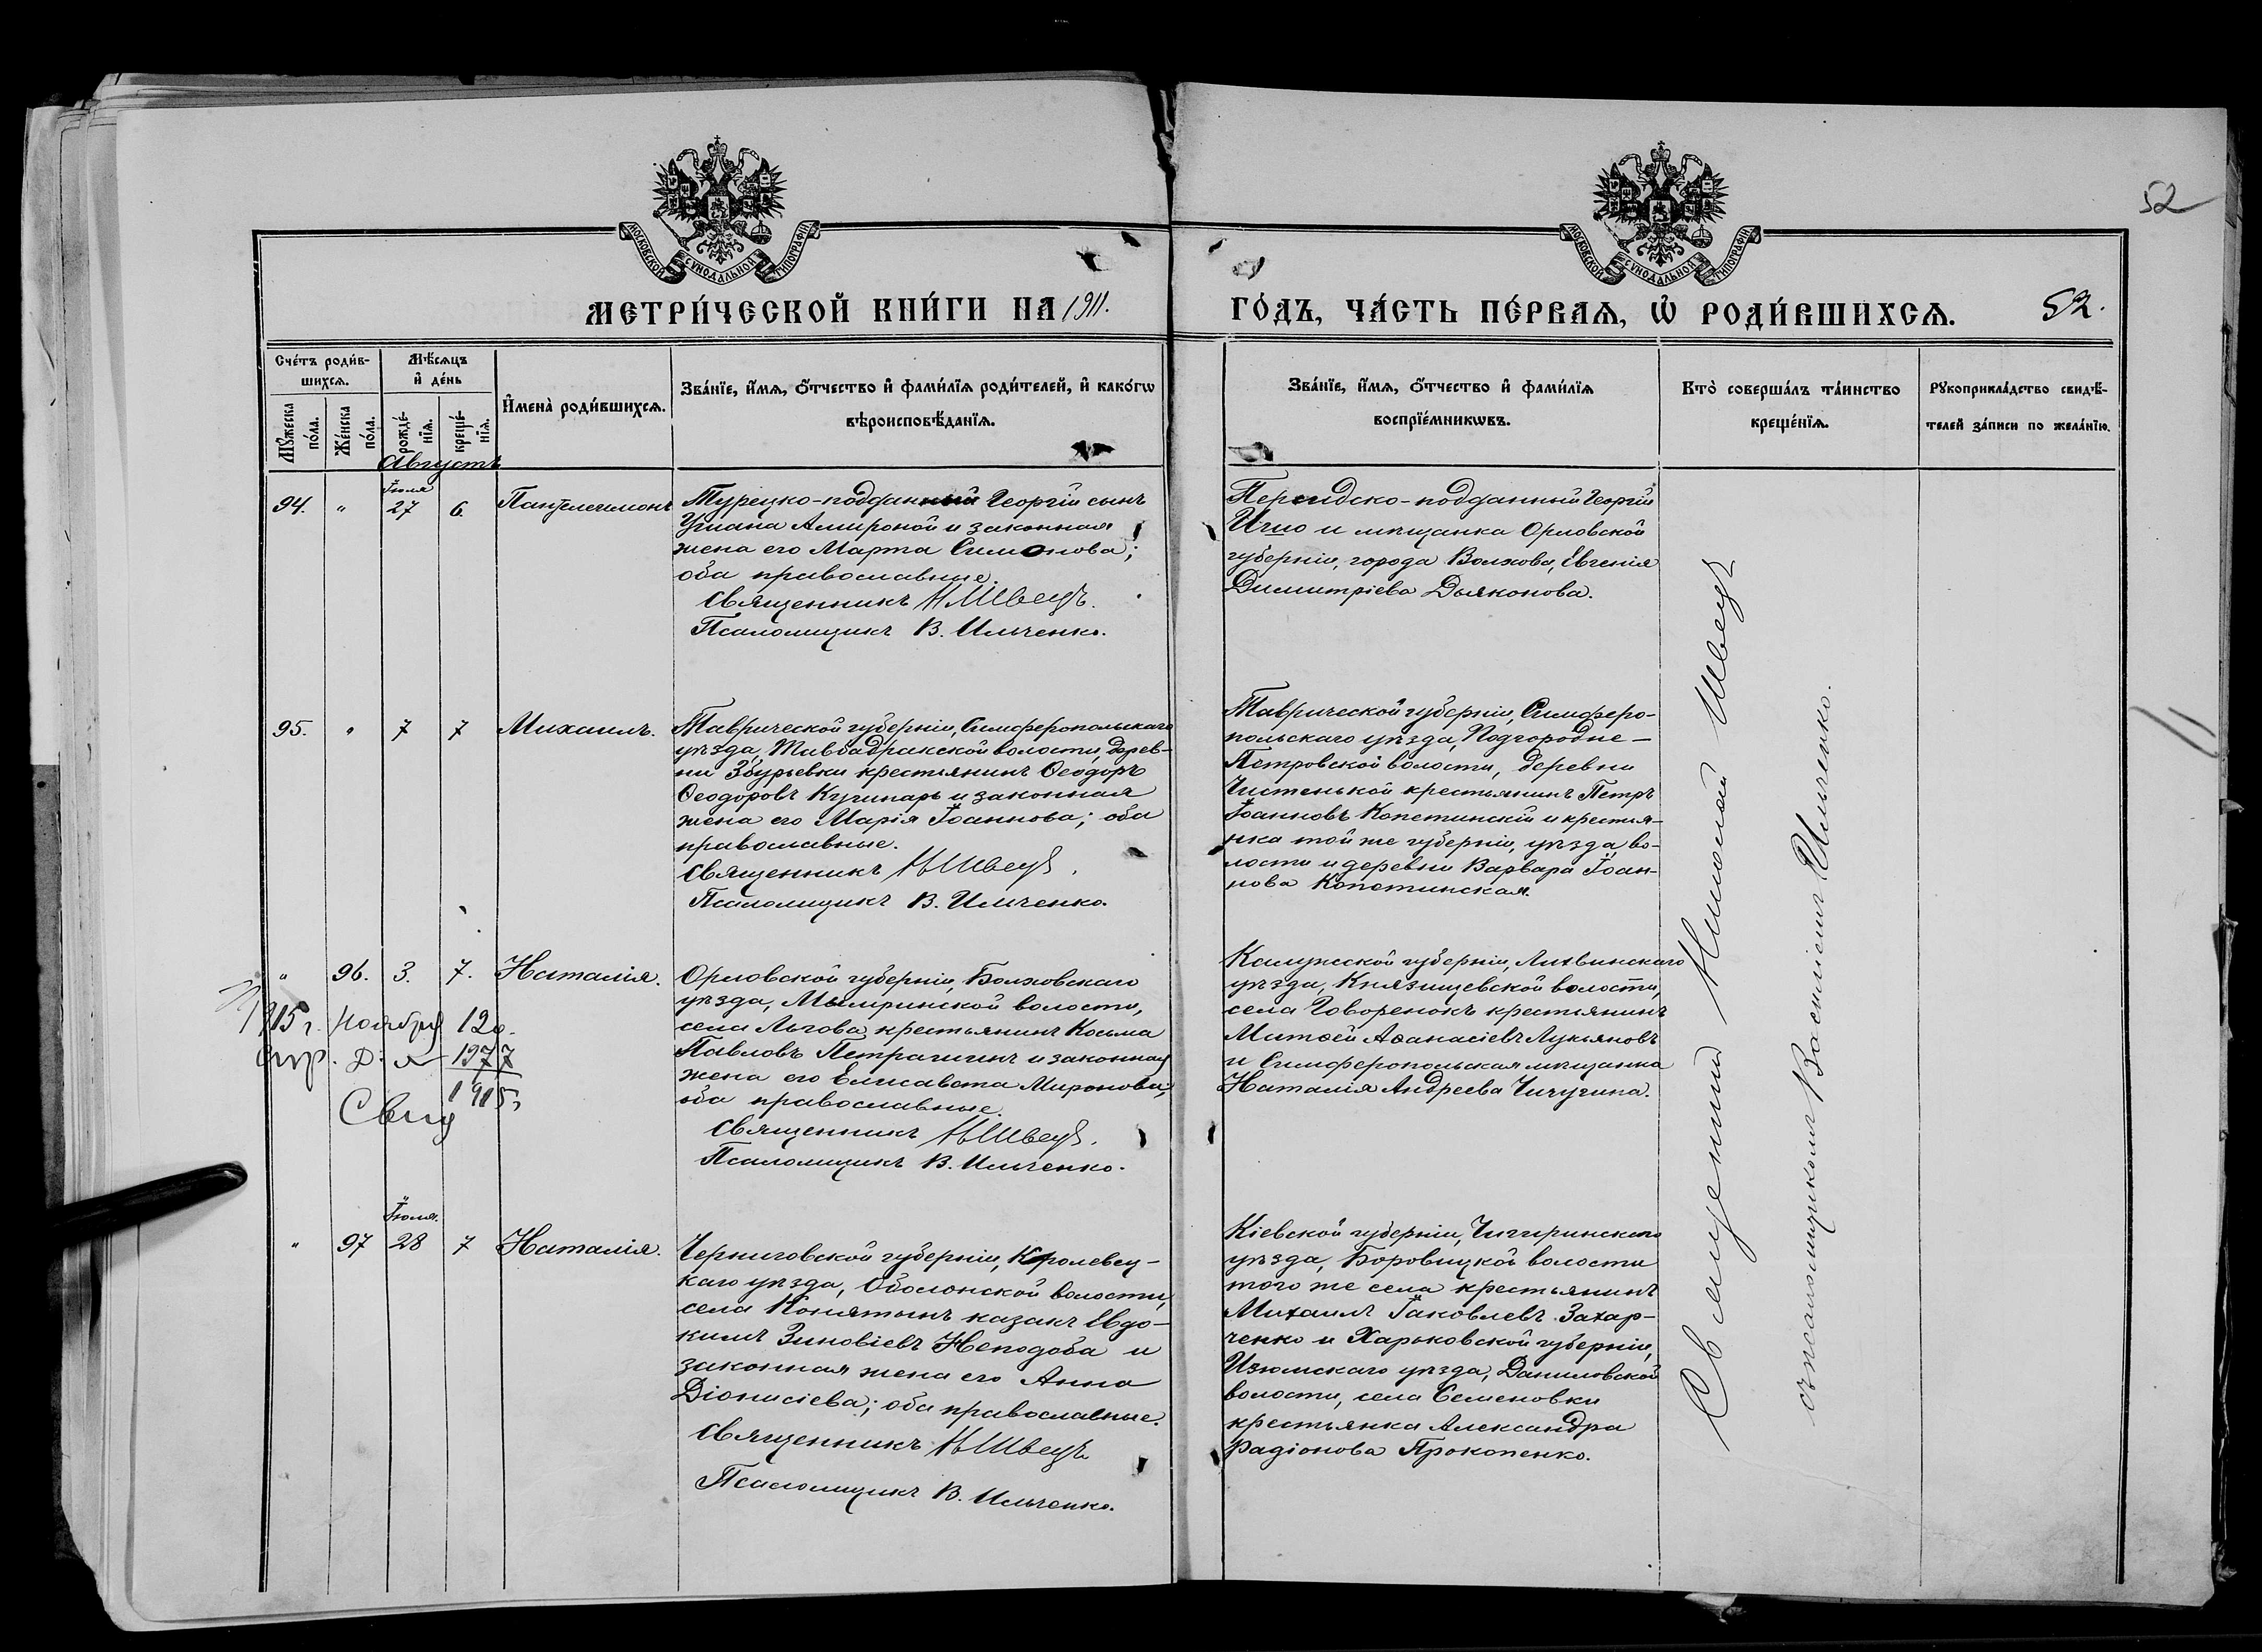 52
МОСКОВСКОЙ СУНОДАЛЬНОЙ ТИПОГРАФІИ
МОСКОВСКОЙ СУНОДАЛЬНОЙ ТИПОГРАФІИ
МЕТРИ́ЧЕСКОЙ КНИ́ГИ НА 1911.
ГО́ДЪ, ЧА́СТЬ ПЕ́РВАѦ, Ѡ҆ РОДИ́ВШИХСѦ. 52.
Сче́тъ роди́в-
шихсѧ.
Мѣ́сѧцъ
и҆ де́нь
Мꙋ́жеска
по́ла.
Же́нска
по́ла.
рожде́-
нїѧ.
креще́-
нїѧ.
И҆мена̀ роди́вшихсѧ.
Зва́нїе, и҆́мѧ, ѻ҆́тчество и҆ фами́лїѧ роди́телей, и҆ како́гѡ
вѣроисповѣ́данїѧ.
Зва́нїе, и҆́мѧ, ѻ҆́тчество и҆ фами́лїѧ
воспрїе́мникѡвъ.
Кто̀ соверша́лъ та́инство
креще́нїѧ.
Рꙋкоприкла́дство свидѣ́-
телей за́писи по жела́нїю.
Августъ
94. " Іюля 27 6. Пантелеимонъ
Турецко-подданный Георгій сынъ
Амироной и законная
жена его Марта Симонова;
оба православные.
Священникъ Н Швецъ.
Псаломщикъ В. Ильченко.
Персидско-подданный Георгій
и мѣщанка Орловской
губерніи, города Волхова, Евгенія
Димитріева Дьяконова.
95. " 7 7 Михаилъ.
Таврической губерніи, Симферопольскаго
уѣзда, Тавбадракской волости, дерев-
ни Збурьевки крестьянинъ Ѳеодоръ
Ѳеодоровъ Кушнарь и законная
жена его Марія Іоаннова; оба
православные.
Священникъ Н Швецъ.
Псаломщикъ В. Ильченко.
Таврической губерніи, Симферо-
польскаго уѣзда, Подгородне-
Петровской волости, деревни
Чистенькой крестьянинъ Петръ
Іоанновъ Копетинскій и крестья-
нка той же губерніи, уѣзда, во-
лости и деревни Варвара Іоан-
нова Копетинская.
" 96. 3. 7. Наталія.
1915 г. Ноября 12
1977
1915
Свид
Орловской губерніи, Болховскаго
уѣзда, Мымринской волости,
села Льгова крестьянинъ Косьма
Павловъ Петрачигинъ и законная
жена его Елисавета Миронова;
оба православные.
Священникъ Н Швецъ.
Псаломщикъ В. Ильченко.
Калужской губерніи, Лихвинскаго
уѣзда, Князищевской волости,
села Говоренокъ крестьянинъ
Матѳей Аѳанасіевъ Лукьяновъ
и Симферопольская мѣщанка
Наталія Андреева Чичугина.
" 97 Іюля. 28 7 Наталія.
Черниговской губерніи, Кролевец-
каго уѣзда, Оболонской волости,
села Конятынъ казакъ Евдо-
кимъ Зиновіевъ Неподоба и
законная жена его Анна
Діонисіева; оба православные.
Священникъ Н Швецъ
Псаломщикъ В. Ильченко.
Кіевской губерніи, Чигиринскаго
уѣзда, Боровицкой волости
того же села крестьянинъ
Михаилъ Іаковлевъ Захар-
ченко и Харьковской губерніи,
Изюмскаго уѣзда, Даниловской
волости, села Семеновки
крестьянка Александра
Радіонова Прокопенко.
Священникъ Николай Швецъ
съ псаломщикомъ Василіемъ Ильченко.